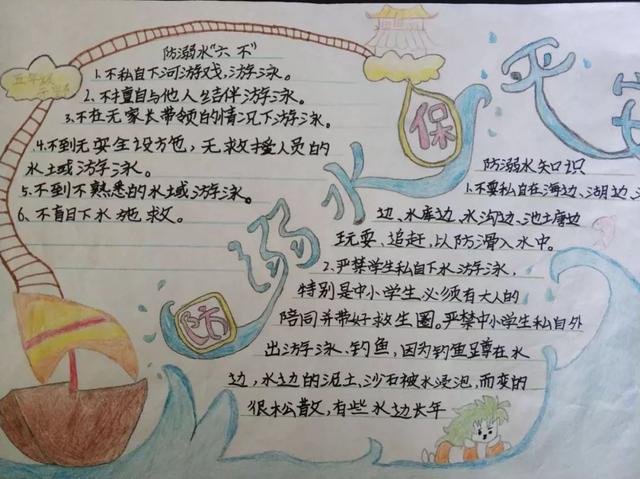 防溺水“六不”
1.不私自下河游戏,游泳。
2.不擅自与他人结伴游泳。
3.不在无家长带领的情况下游泳。
4.不到无安全设施,无救援人员的
水土或游泳。
5.不到不熟悉的水土或游泳。
6.不盲目下水施救。
五年级
防溺水
保平安
防溺水知识
1.不要私自在海边、湖边、
边、水库边、水沟边、池土唐边
玩耍、追赶,以防滑入水中。
2.严禁学生私自下水游泳,
特别是中小学生必须有大人的
陪同并带好救生圈。严禁中小学生私自外
出游泳、钓鱼,因为钓鱼蹲在水
边,水边的泥土、沙石被水浸泡,而变的
很松散,有些水边长年